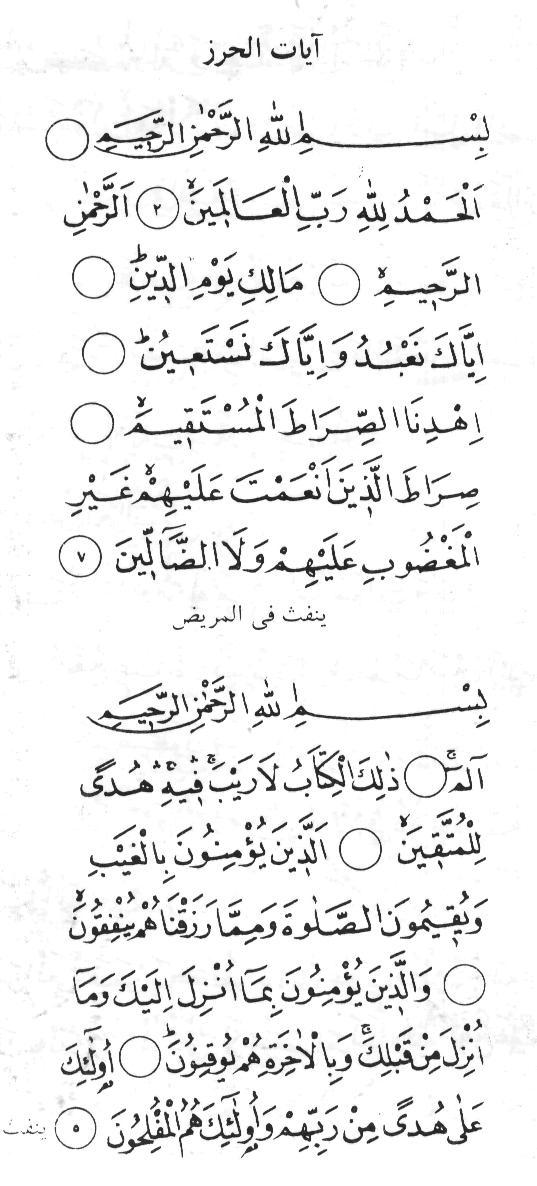 آيات الحرز
بِسْمِ اللهِ الرَّحْمٰنِ الرَّحِيمِ
اَلْحَمْدُ لِلّٰهِ رَبِّ الْعَالَمِينَۙ ٢ اَلرَّحْمٰنِ
الرَّحِيمِۙ مَالِكِ يَوْمِ الدِّينِۜ
اِيَّاكَ نَعْبُدُ وَاِيَّاكَ نَسْتَعِينُۜ
اِهْدِنَا الصِّرَاطَ الْمُسْتَقِيمَۙ
صِرَاطَ الَّذِينَ اَنْعَمْتَ عَلَيْهِمْۙ غَيْرِ
الْمَغْضُوبِ عَلَيْهِمْ وَلَا الضَّٓالِّينَ ٧
ينفث فى المريض
بِسْمِ اللهِ الرَّحْمٰنِ الرَّحِيمِ
آلٓمٓۚ ذٰلِكَ الْكِتَابُ لَا رَيْبَۚ فِيهِۚ هُدًى
لِلْمُتَّقِينَۙ اَلَّذِينَ يُؤْمِنُونَ بِالْغَيْبِ
وَيُقِيمُونَ الصَّلٰوةَ وَمِمَّا رَزَقْنَاهُمْ يُنْفِقُونَۙ
وَالَّذِينَ يُؤْمِنُونَ بِمَٓا اُنْزِلَ اِلَيْكَ وَمَٓا
اُنْزِلَ مِنْ قَبْلِكَۚ وَبِالْاٰخِرَةِ هُمْ يُوقِنُونَۜ اُو۬لٰٓئِكَ
عَلٰى هُدًى مِنْ رَبِّهِمْ وَاُو۬لٰٓئِكَ هُمُ الْمُفْلِحُونَ ٥ ينفث